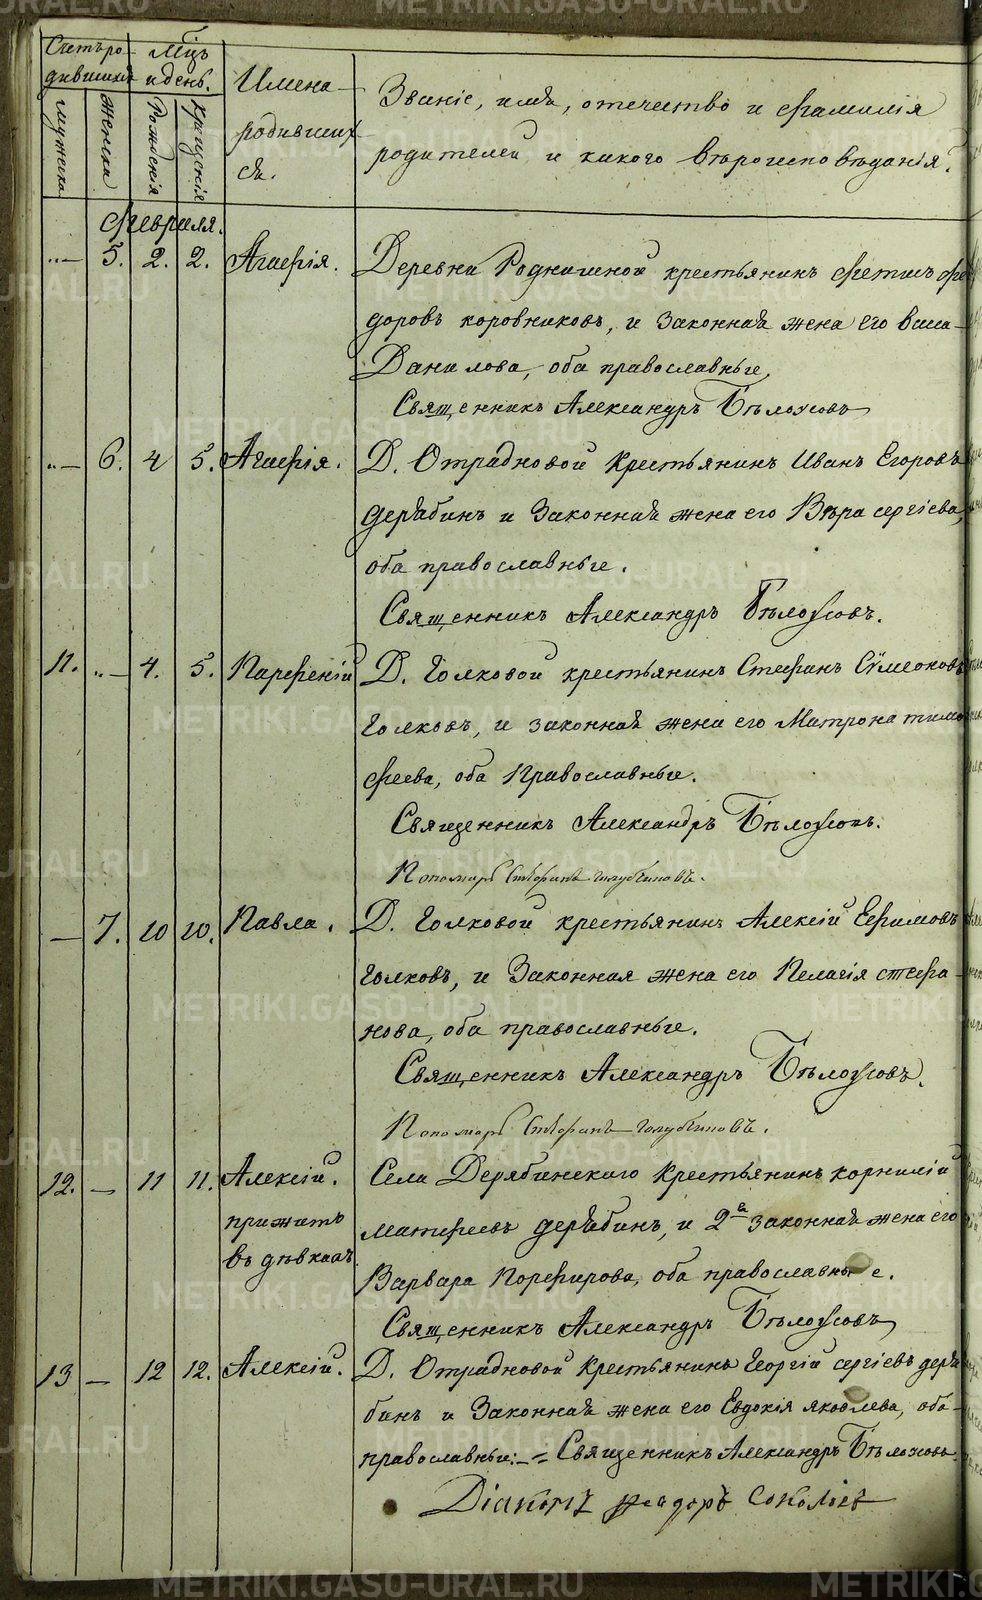 Счетъ ро-
дившихся
Мѣцъ
и день.
Имена
родивших-
ся.
Званіе, имя, отечество и фамилія
родителей и какого вѣроисповѣданія.
мужеска
женска
Рожденія
Крещенія
Февраля.
"— 5. 2. 2. Агафія. Деревни Родниковой крестьянинъ Фетисъ Фе-
доровъ коровниковъ, и Законная жена его васса
Данилова, оба православные,
Священникъ Александръ Бѣлоусовъ
"— 6. 4 5. Агафія. Д. Отрадновой Крестьянинъ Иванъ Егоровъ
дерябинъ и Законная жена его Вѣра сергіева,
оба православные.
Священникъ Александръ Бѣлоусовъ.
11. "— 4. 5. Парфеній Д. Голковой крестьянинъ Стефанъ Сѵмеоновъ
Голковъ, и законная жена его Матрона тимо
феева, оба Православные.
Священникъ Александръ Бѣлоусовъ.
Пономарь Стефанъ голубчиковъ.
— 7. 10 10. Павла. Д. Голковой крестьянинъ Алексій Ефимовъ
Голковъ, и Законная жена его Пелагія стефа-
нова, оба православные.
Священникъ Александръ Бѣлоусовъ.
Пономарь Стефанъ голубчиковъ.
12. — 11 11. Алексій. Села Дерябинскаго Крестьянинъ корнилій
прижитъ
матфеевъ дерябинъ, и 2а законная жена его
въ дѣвкахъ.
Варвара Порфирова, оба православные.
Священникъ Александръ Бѣлоусовъ
13 — 12 12. Алексій. Д. Отрадновой Крестьянинъ Георгій сергіевъ деря
бинъ и Законная жена его Евдокія яковлева, оба
православные:-= Священникъ Александръ Бѣлоусовъ.
Діаконъ Феодоръ Соколовъ
METRIKI.GASO-URAL.RU